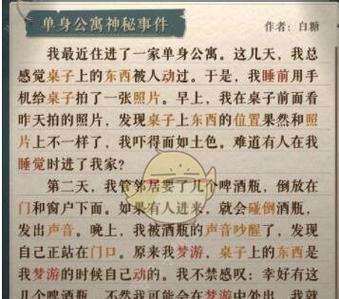 单身公寓神秘事件
作者：白糖
我最近住进了一家单身公寓。这几天，我总
感觉桌子上的东西被人动过。于是，我睡前用手
机给桌子拍了一张照片。早上，我在桌子前面看
昨天拍的照片，发现桌子上东西的位置果然和照
片上不一样了，我吓得面如土色。难道有人在我
睡觉时进了我家？
第二天，我管邻居要了几个啤酒瓶，倒放在
门和窗户下面。如果有人进来，就会碰倒酒瓶，
发出声音。晚上，我被酒瓶的声音吵醒了，发现
自己正站在门口。原来我梦游，桌子上的东西是
我梦游的时候自己动的。我不禁感叹：幸好有这
几个啤酒瓶，不然我可能会在梦中外出，我就